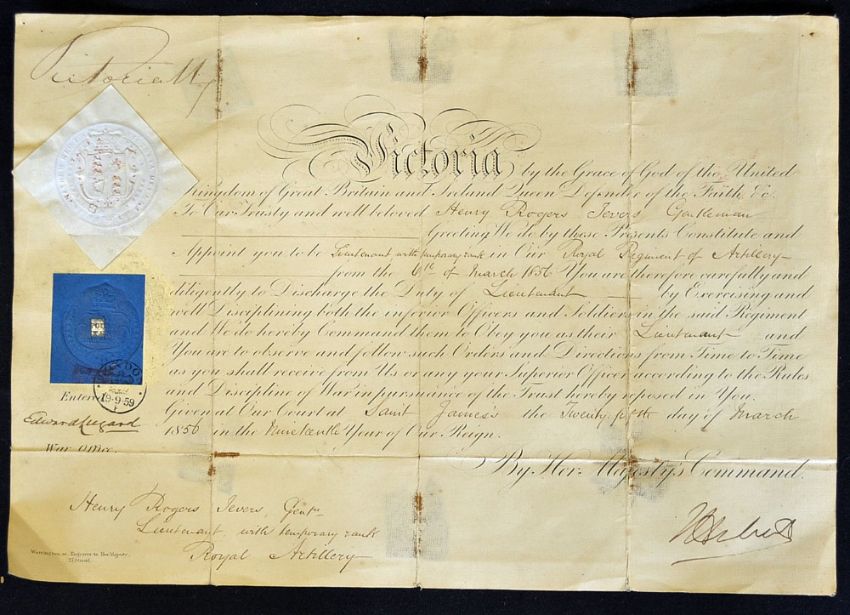 Victoria
Victoria by the Grace of God of the United
Kingdom of Great Britain and Ireland Queen Defender of the Faith &c.
To Our Trusty and well beloved Henry Rogers Ievers Gentleman
Greeting We do by these Presents Constitute and
Appoint you to be Lieutenant with temporary rank in Our Royal Regiment of Artillery
from the 6th of March 1856 You are therefore carefully and
diligently to Discharge the Duty of Lieutenant by Exercising and
well Disciplining both the inferior Officers and Soldiers in the said Regiment
and We do hereby Command them to Obey you as their Lieutenant and
You are to observe and follow such Orders and Directions from Time to Time
as you shall receive from Us or any your Superior Officer according to the Rules
and Discipline of War in pursuance of the Trust hereby reposed in You.
Given at Our Court at Saint James's the Twenty fifth day of March
1856 in the Nineteenth Year of Our Reign.
By Her Majesty's Command.
Entered
19-9-59
War Office.
Henry Rogers Ievers, Gent
Lieutenant, with temporary rank
Royal Artillery